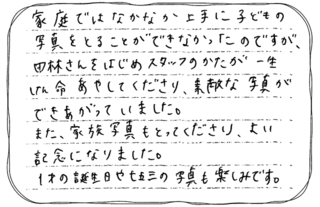 家庭ではなかなか上手に子どもの
写真をとることができなかったのですが、
田林さんをはじめスタッフのかたが一生
けん命あやしてくださり、素敵な写真が
できあがっていました。
また、家族写真もとってくださり、よい
記念になりました。
1才の誕生日や七五三の写真も楽しみです。